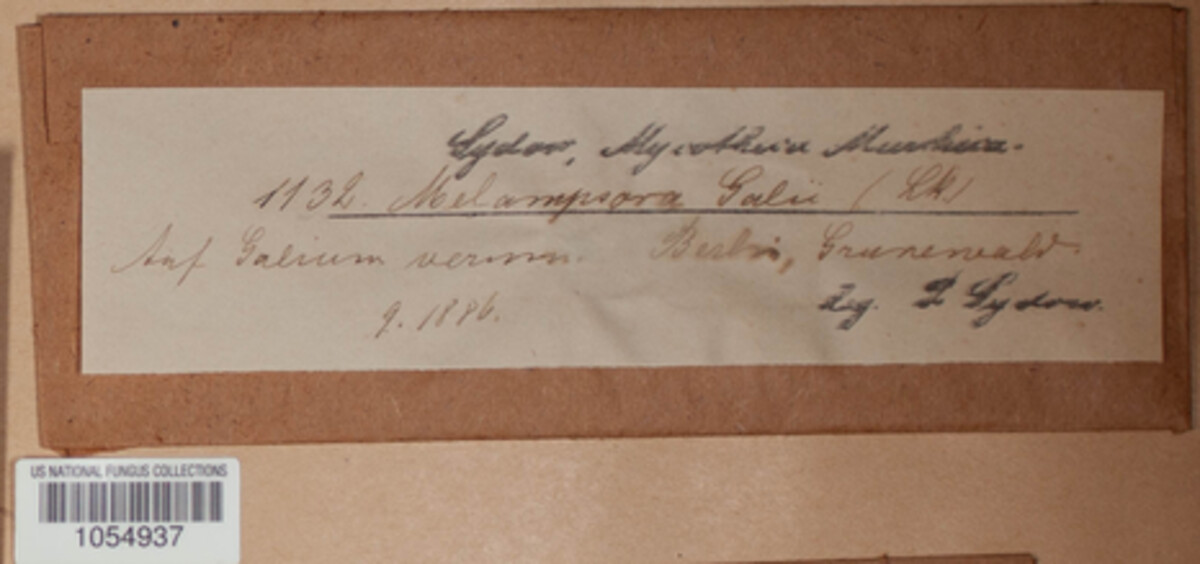 Sydow, Mycotheca Marchica.
1132. Melampsora Galii (Lk.)
Auf Galium verum. Berlin, Grunewald.
9. 1886.
Leg. P Sydow.
US NATIONAL FUNGUS COLLECTIONS
1054937